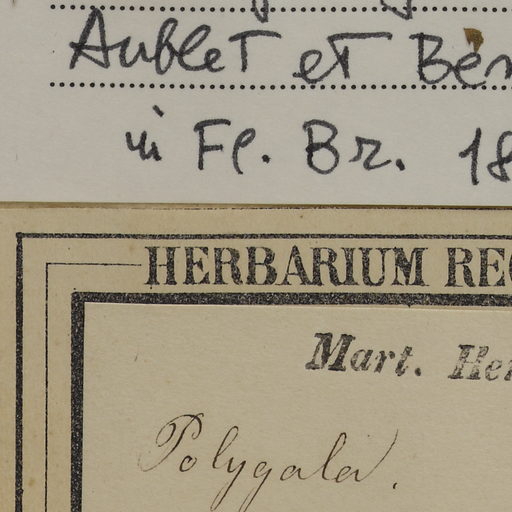 Aublet et Bèn
in Fl. Br. 18
HERBARIUM REG
Mart. Her
Polygala.